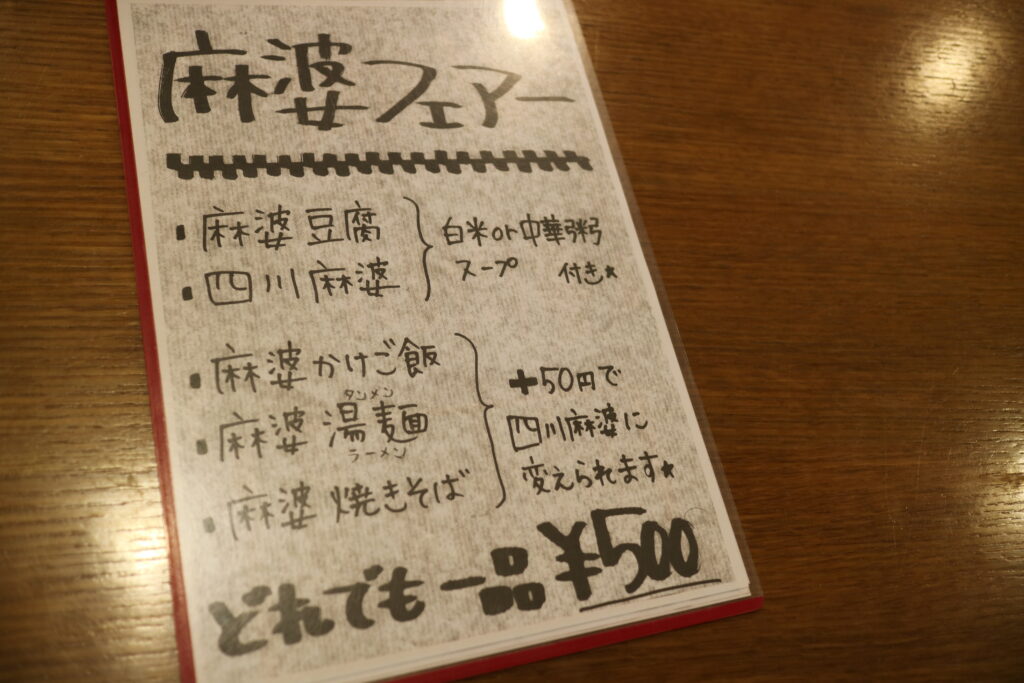 麻婆フェアー
・麻婆豆腐
・四川麻婆
白米or中華粥
スープ 付き★
・麻婆かけご飯
・麻婆湯麺
タンメン
ラーメン
・麻婆焼きそば
+50円で
四川麻婆に
変えられます★
どれでも一品¥500